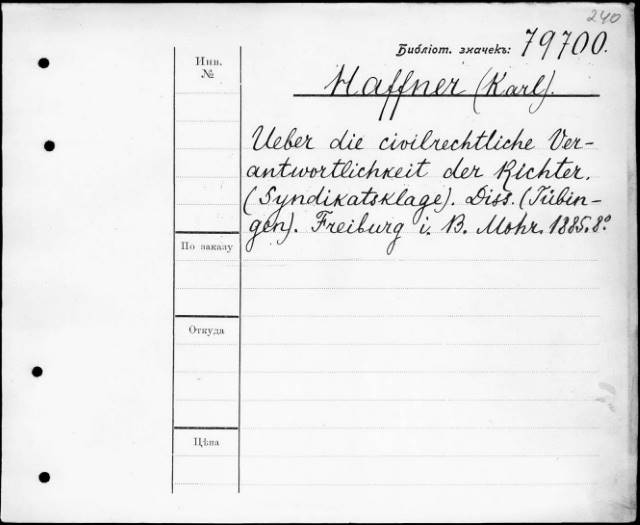 240
Библіот. значекъ: 79700.
Инв.
№
Haffner (Karl).
Ueber die civilrechtliche Ver-
antwortlichkeit der Richter.
(Syndikatsklage). Diss. (Tübin-
gen). Freiburg i. B. Mohr. 1885. 8°
По заказу
Откуда
Цѣна